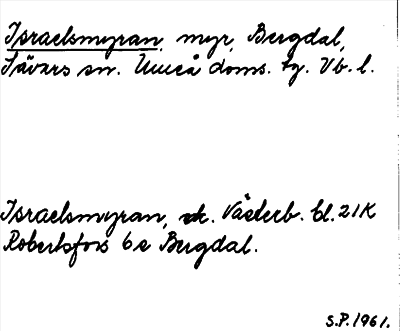 Israelsmyran, myr, Bergdal,
Sävars sn. Umeå doms. tg. Vb. l.
Israelsmyran, ek. Västerb. bl. 21K
Robertsfors 6e Bergdal.
S.P. 1961.